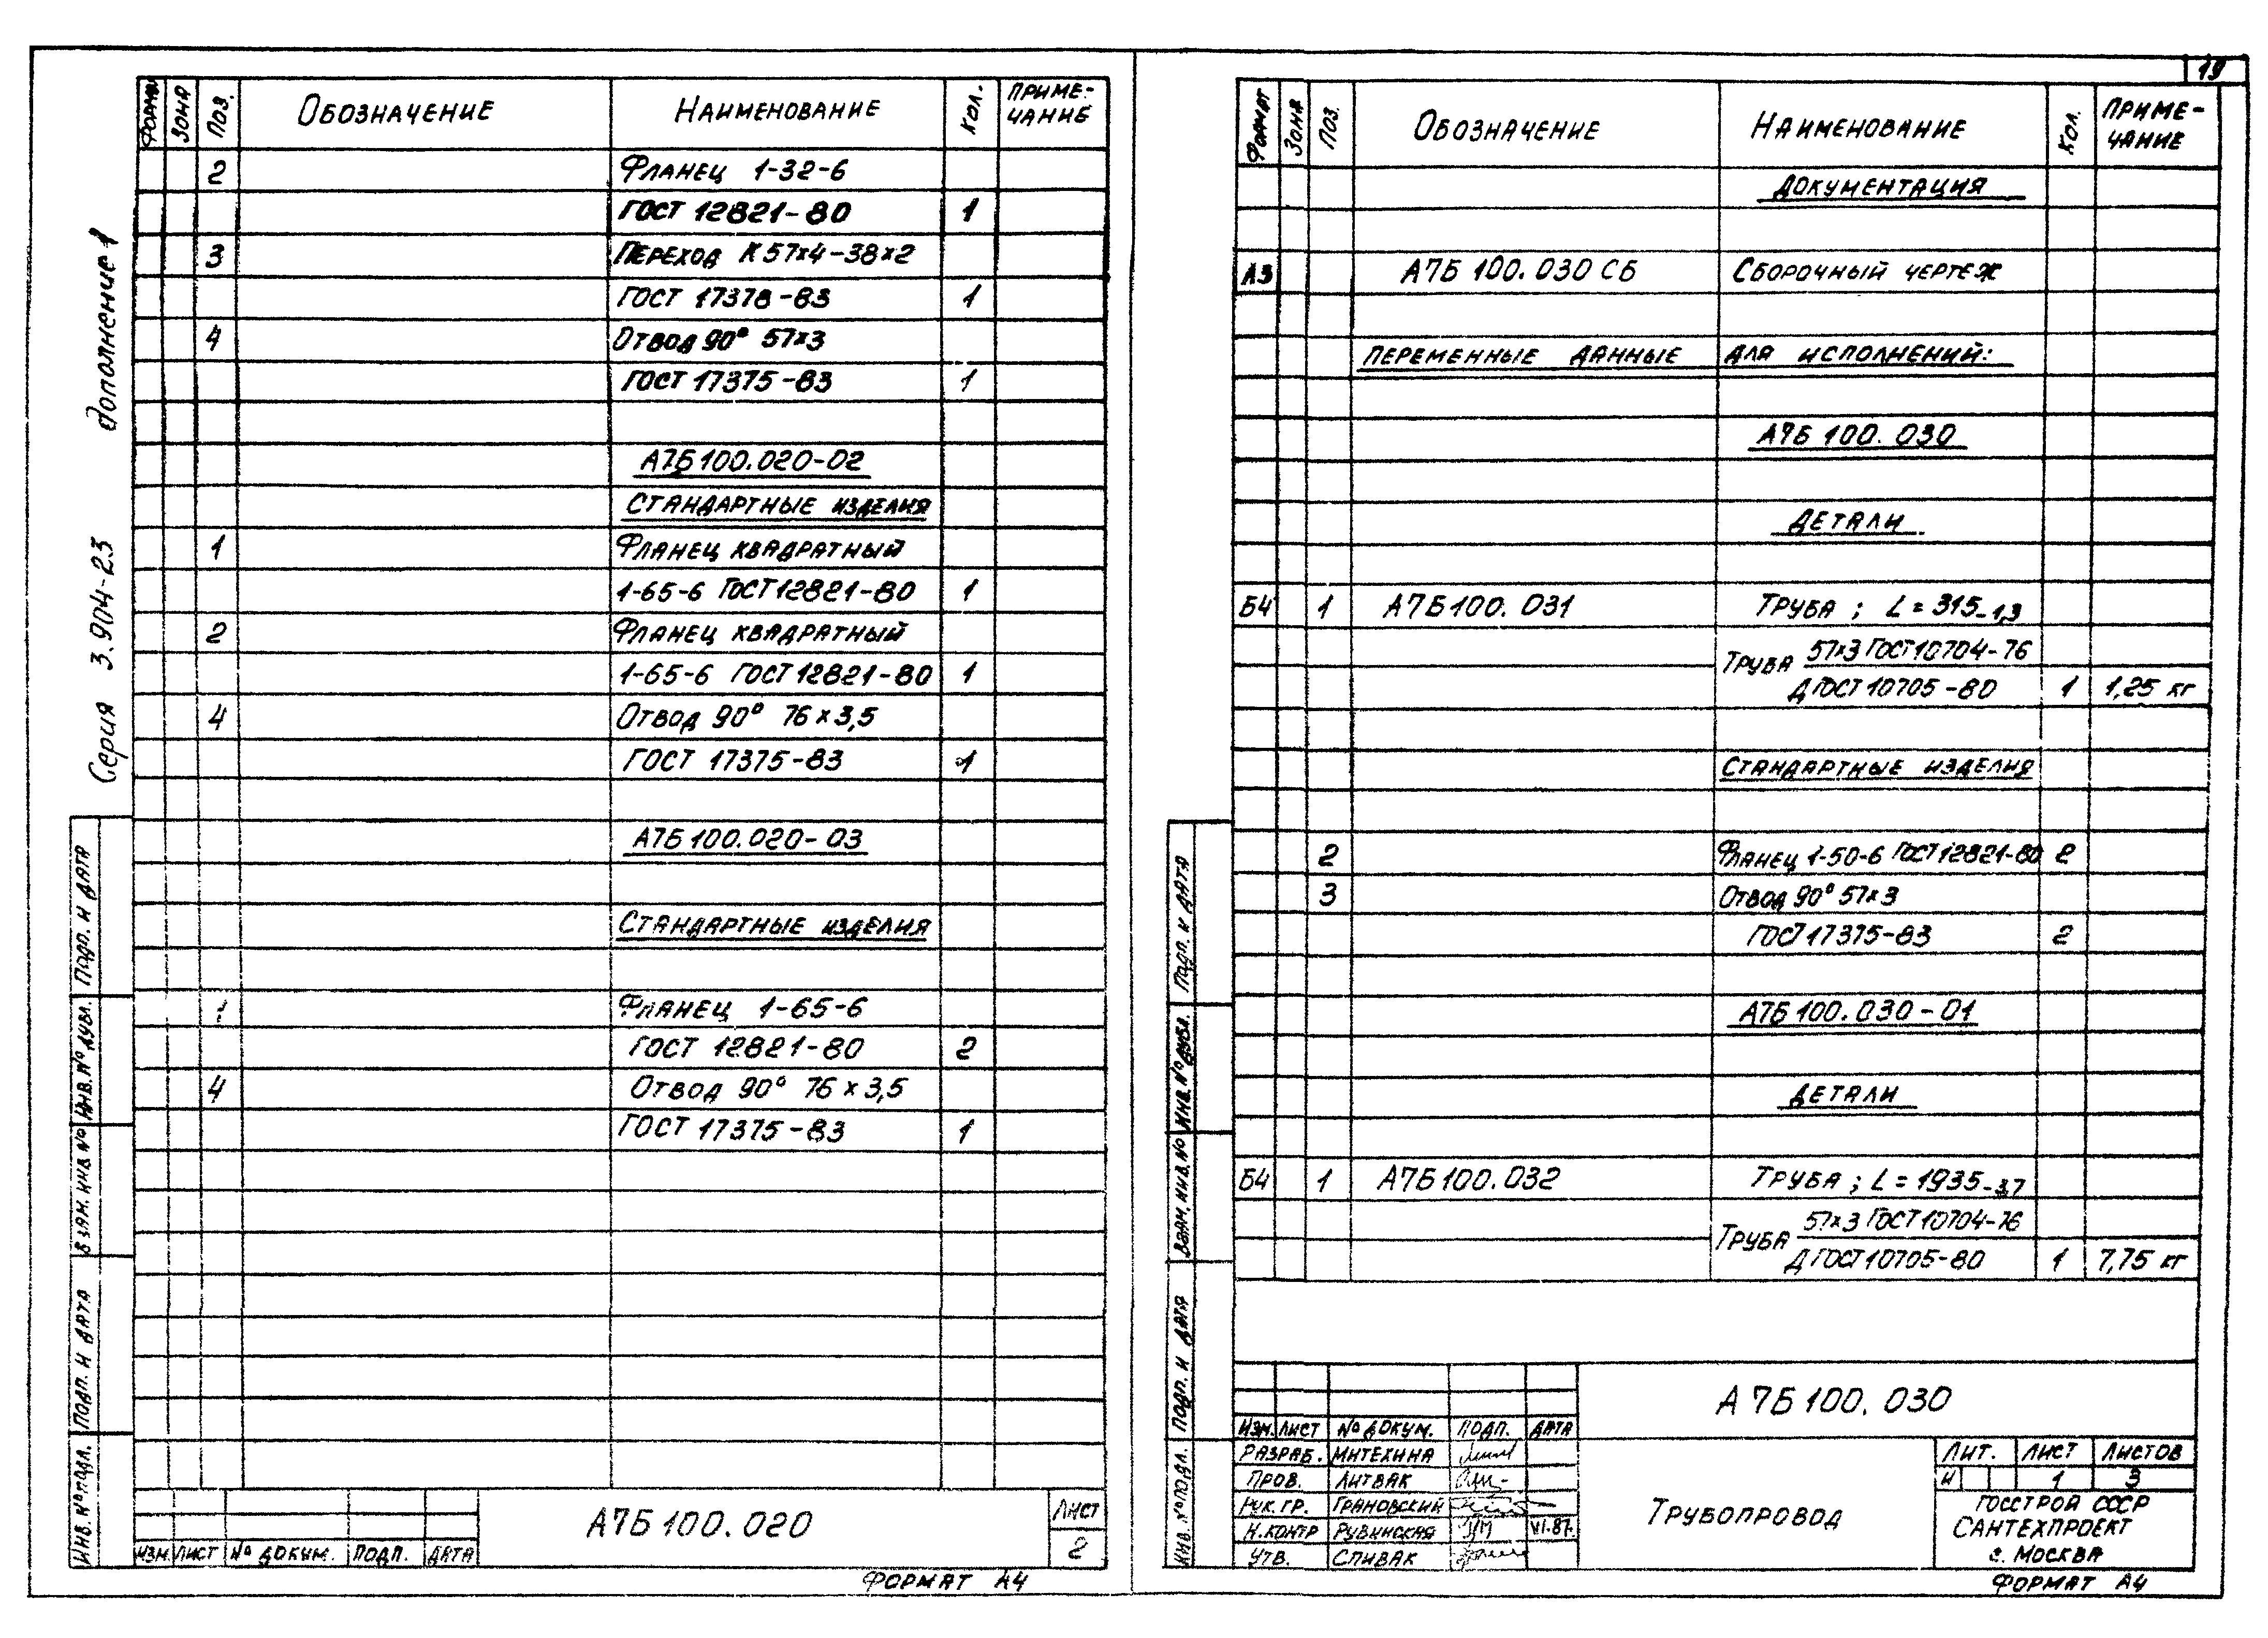 19
Серия 3.904-23 дополнение 1
Формат Зона Поз. Обозначение Наименование Кол. Приме-
чание
2 Фланец 1-32-6
ГОСТ 12821-80 1
3 Переход К 57×4-38×2
ГОСТ 17378-83 1
4 Отвод 90° 57×3
ГОСТ 17375-83 1
А7Б100.020-02
Стандартные изделия
1 Фланец квадратный
1-65-6 ГОСТ 12821-80 1
2 Фланец квадратный
1-65-6 ГОСТ 12821-80 1
4 Отвод 90° 76×3,5
ГОСТ 17375-83 1
А7Б100.020-03
Стандартные изделия
1 Фланец 1-65-6
ГОСТ 12821-80 2
4 Отвод 90° 76×3,5
ГОСТ 17375-83 1
Подп. и дата
Инв. № дубл.
Взам. инв. №
Подп. и дата
Инв. № подл.
Изм. Лист № докум. Подп. Дата
А7Б100.020
Лист
2
Формат А4
Формат Зона Поз. Обозначение Наименование Кол. Приме-
чание
Документация
А3 А7Б 100.030 СБ Сборочный чертеж
Переменные данные для исполнений:
А7Б 100.030
Детали
Б4 1 А7Б100.031 Труба; L=315-1,3
Труба 57×3 ГОСТ 10704-76
Д ГОСТ 10705-80 1 1,25 кг
Стандартные изделия
2 Фланец 1-50-6 ГОСТ 12821-80 2
3 Отвод 90° 57×3
ГОСТ 17375-83 2
А7Б100.030-01
Детали
Б4 1 А7Б100.032 Труба; L=1935-3,7
Труба 57×3 ГОСТ 10704-76
Д ГОСТ 10705-80 1 7,75 кг
Подп. и дата
Инв. № дубл.
Взам. инв. №
Подп. и дата
Инв. № подл.
А7Б100.030
Изм. Лист № докум. Подп. Дата
Разраб. Митехина
Пров. Литвак
Рук. гр. Грановский
Н. контр Рувинская VI.87.
Утв. Спивак
Трубопровод
Лит. Лист Листов
И 1 3
Госстрой СССР
Сантехпроект
г. Москва
Формат А4